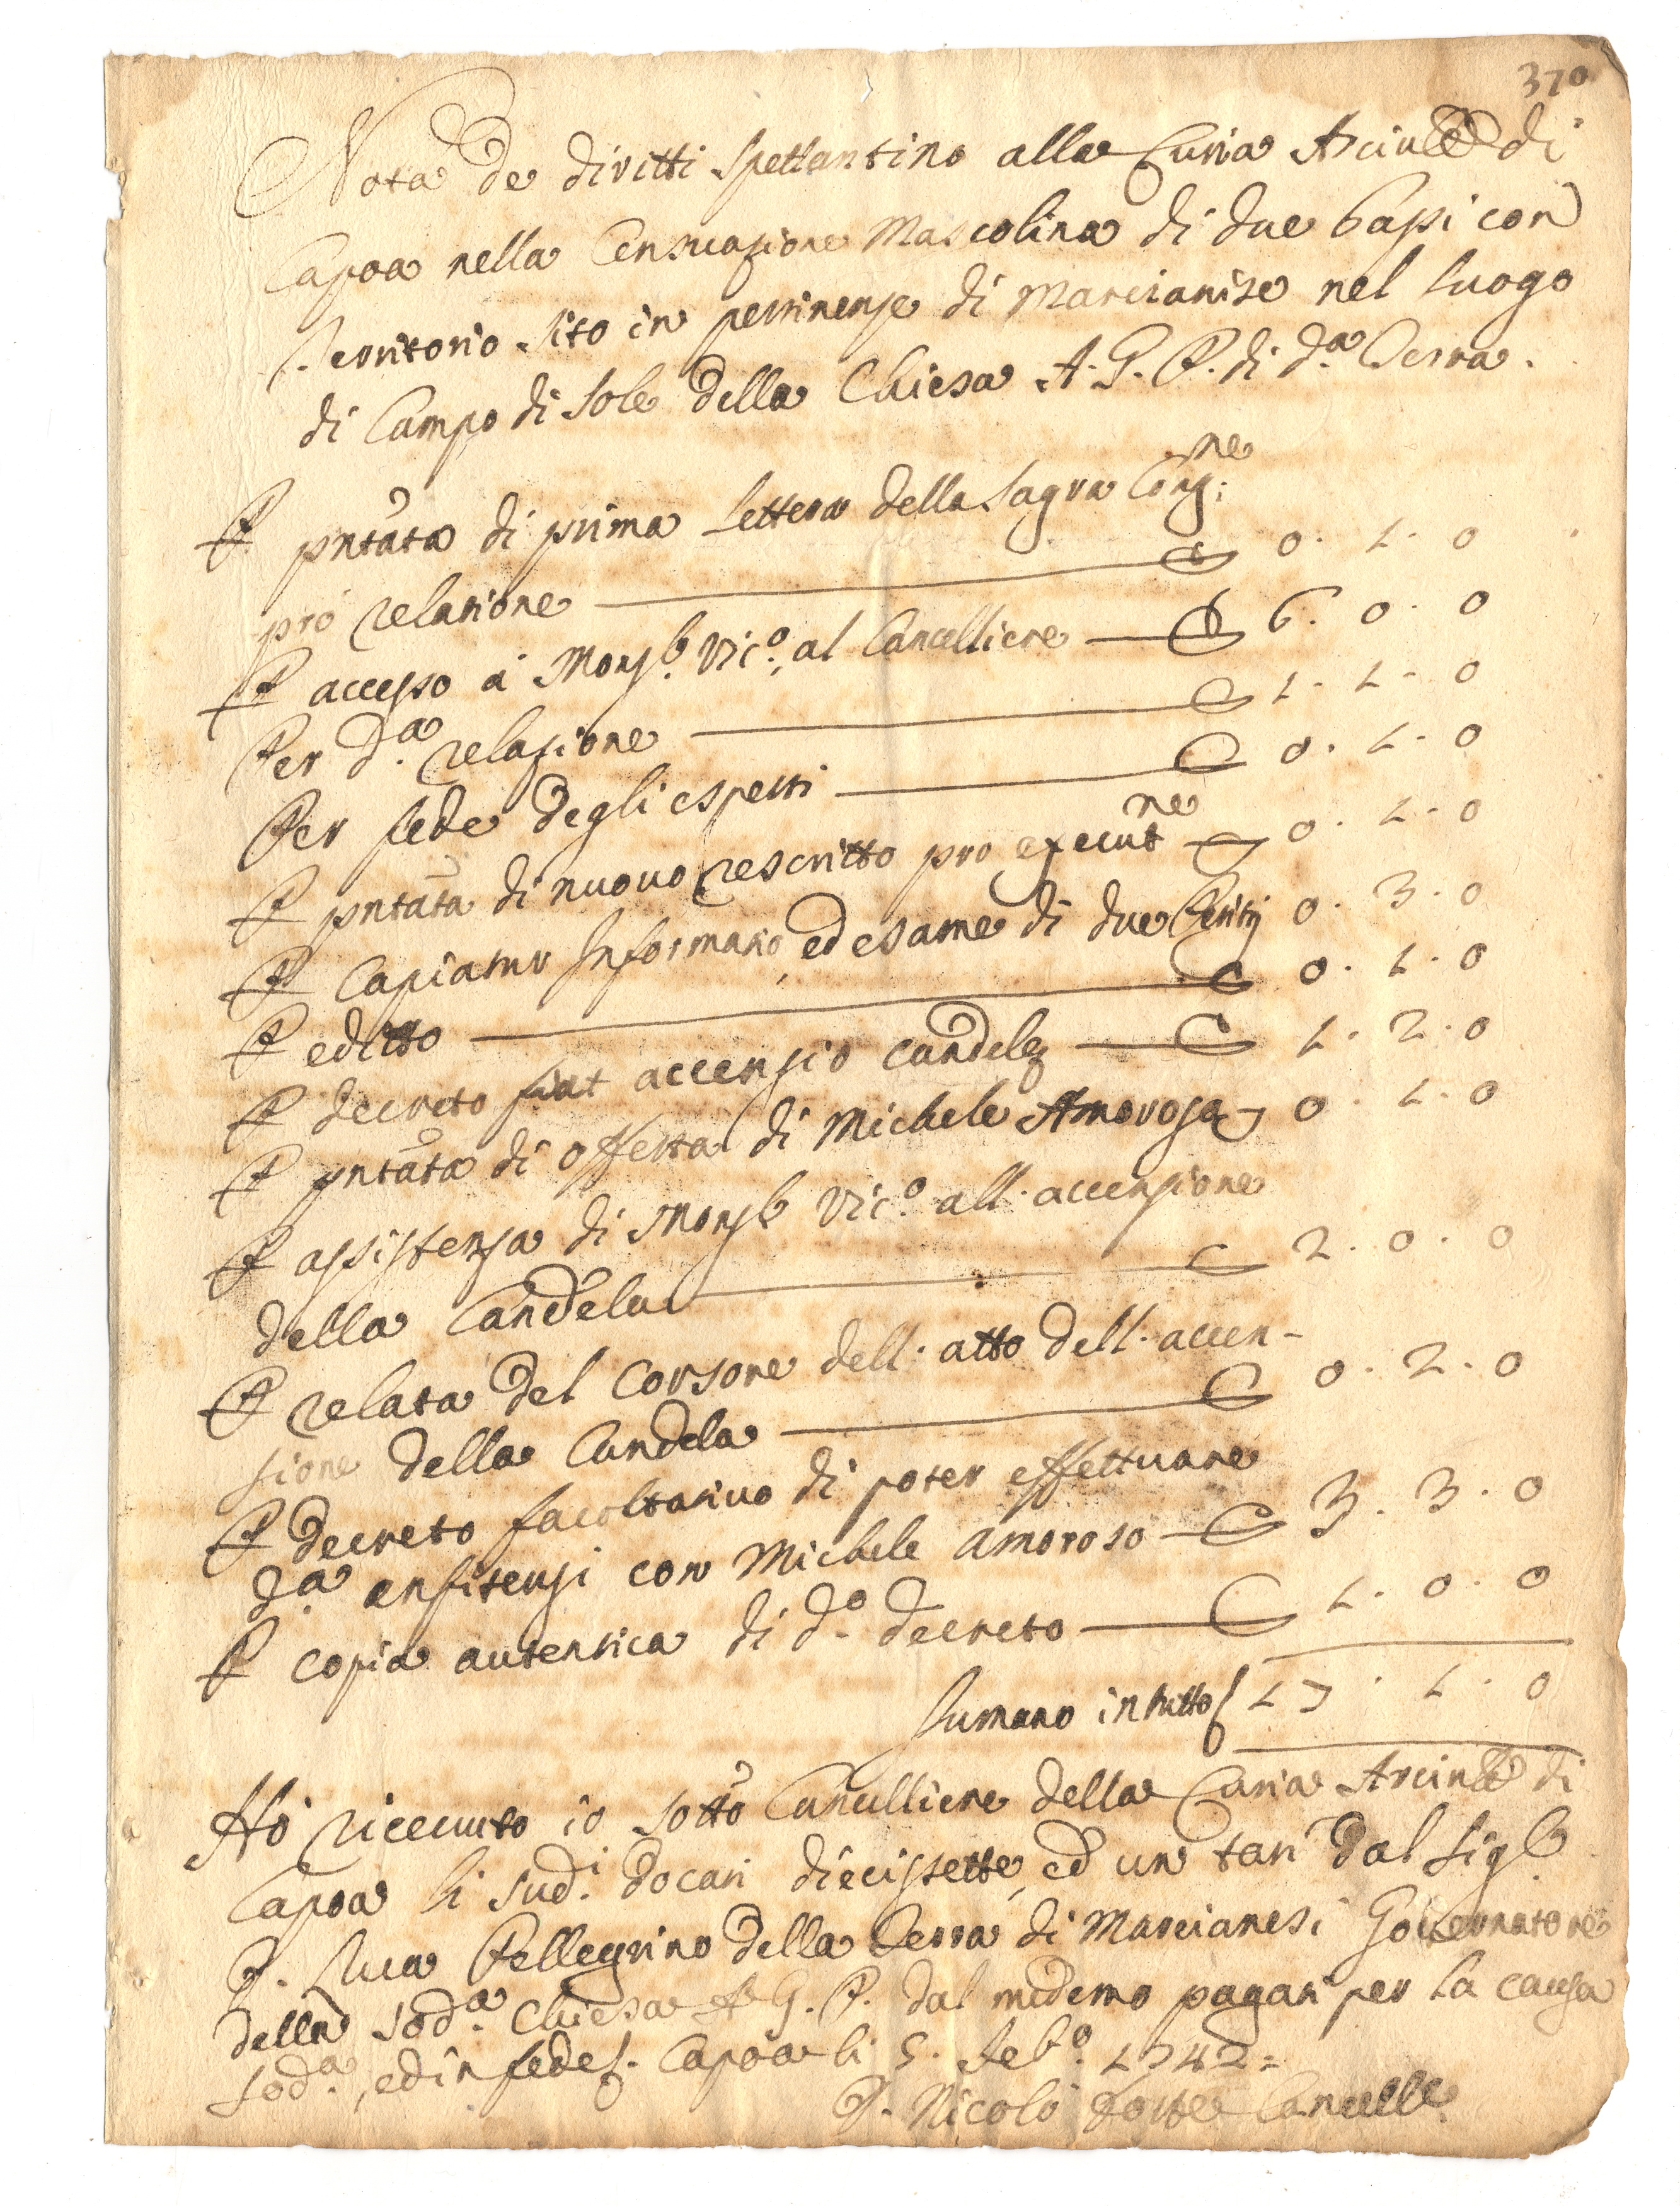 370
Nota de diritti spettantino alla Curia Arciv.le di
Capoa nella Censuazione Mascolina di due Capi con
Territorio sito in pertinenze di Marcianise nel luogo
di Campo di Sole della Chiesa A. G. P. di d.a Terra.
P pntata di prima lettera della Sagra Cong.ne
pro relatione — 0. 1. 0
P accesso a Monsr. Vic.o, al Cancelliere — 6. 0. 0
Per d.a relazione — 1. 1. 0
Per fede degli esperti — 0. 1. 0
P pntata di nuovo rescritto pro execut.ne — 0. 1. 0
P Capiatur Informatio, ed esame di due Periti 0. 3. 0
P editto — 0. 1. 0
P decreto fiat accensio candele — 1. 2. 0
P pntata di offerta di Michele Amorosa — 0. 1. 0
P assistenza di Monsr Vic.o all'accensione
della Candela — 2. 0. 0
P relata del Corsore dell'atto dell'accen-
sione della Candela — 0. 2. 0
P decreto facoltativo di poter effettuare
d.a enfiteusi con Michele Amoroso — 3. 3. 0
P copia autentica di d.o decreto — 1. 0. 0
Sumano in tutto 17. 1. 0
Hò ricevuto io sotto Cancelliere della Curia Arciv.le di
Capoa li sud.i docati diecissette, ed un tarì dal Sigr.
D. Luca Pellegrino della Terra di Marcianesi Governatore
della sod.a Chiesa A G. P. dal medemo pagati per la causa
sod.a, ed in fede. Capoa li 5. Feb.o 1742=
D. Nicolò Cancellre